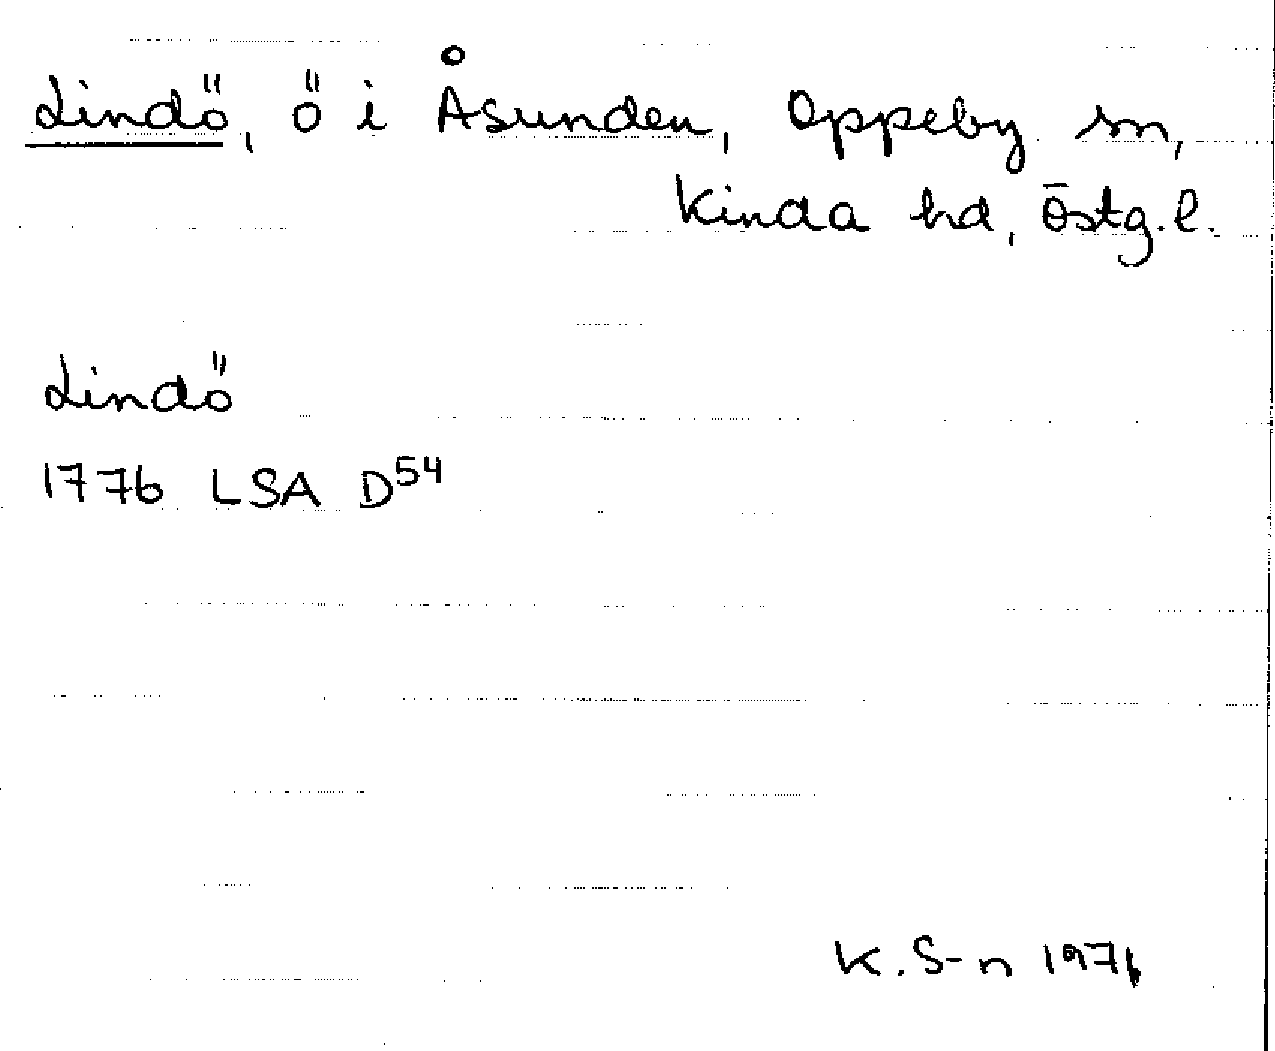 Lindö, ö i Åsunden, Oppeby sn,
Kinda hd, Östg.l.
Lindö
1776 LSA D54
K.S-n 1976